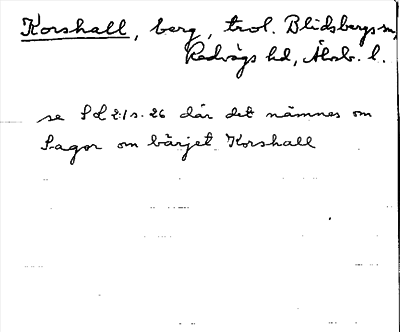 Korshall, berg, trol. Blidsbergs sn,
Redvägs hd, Älvsb. l.
se SL 2:1 s. 26 där det nämnes om
Sagor om bärjet Korshall